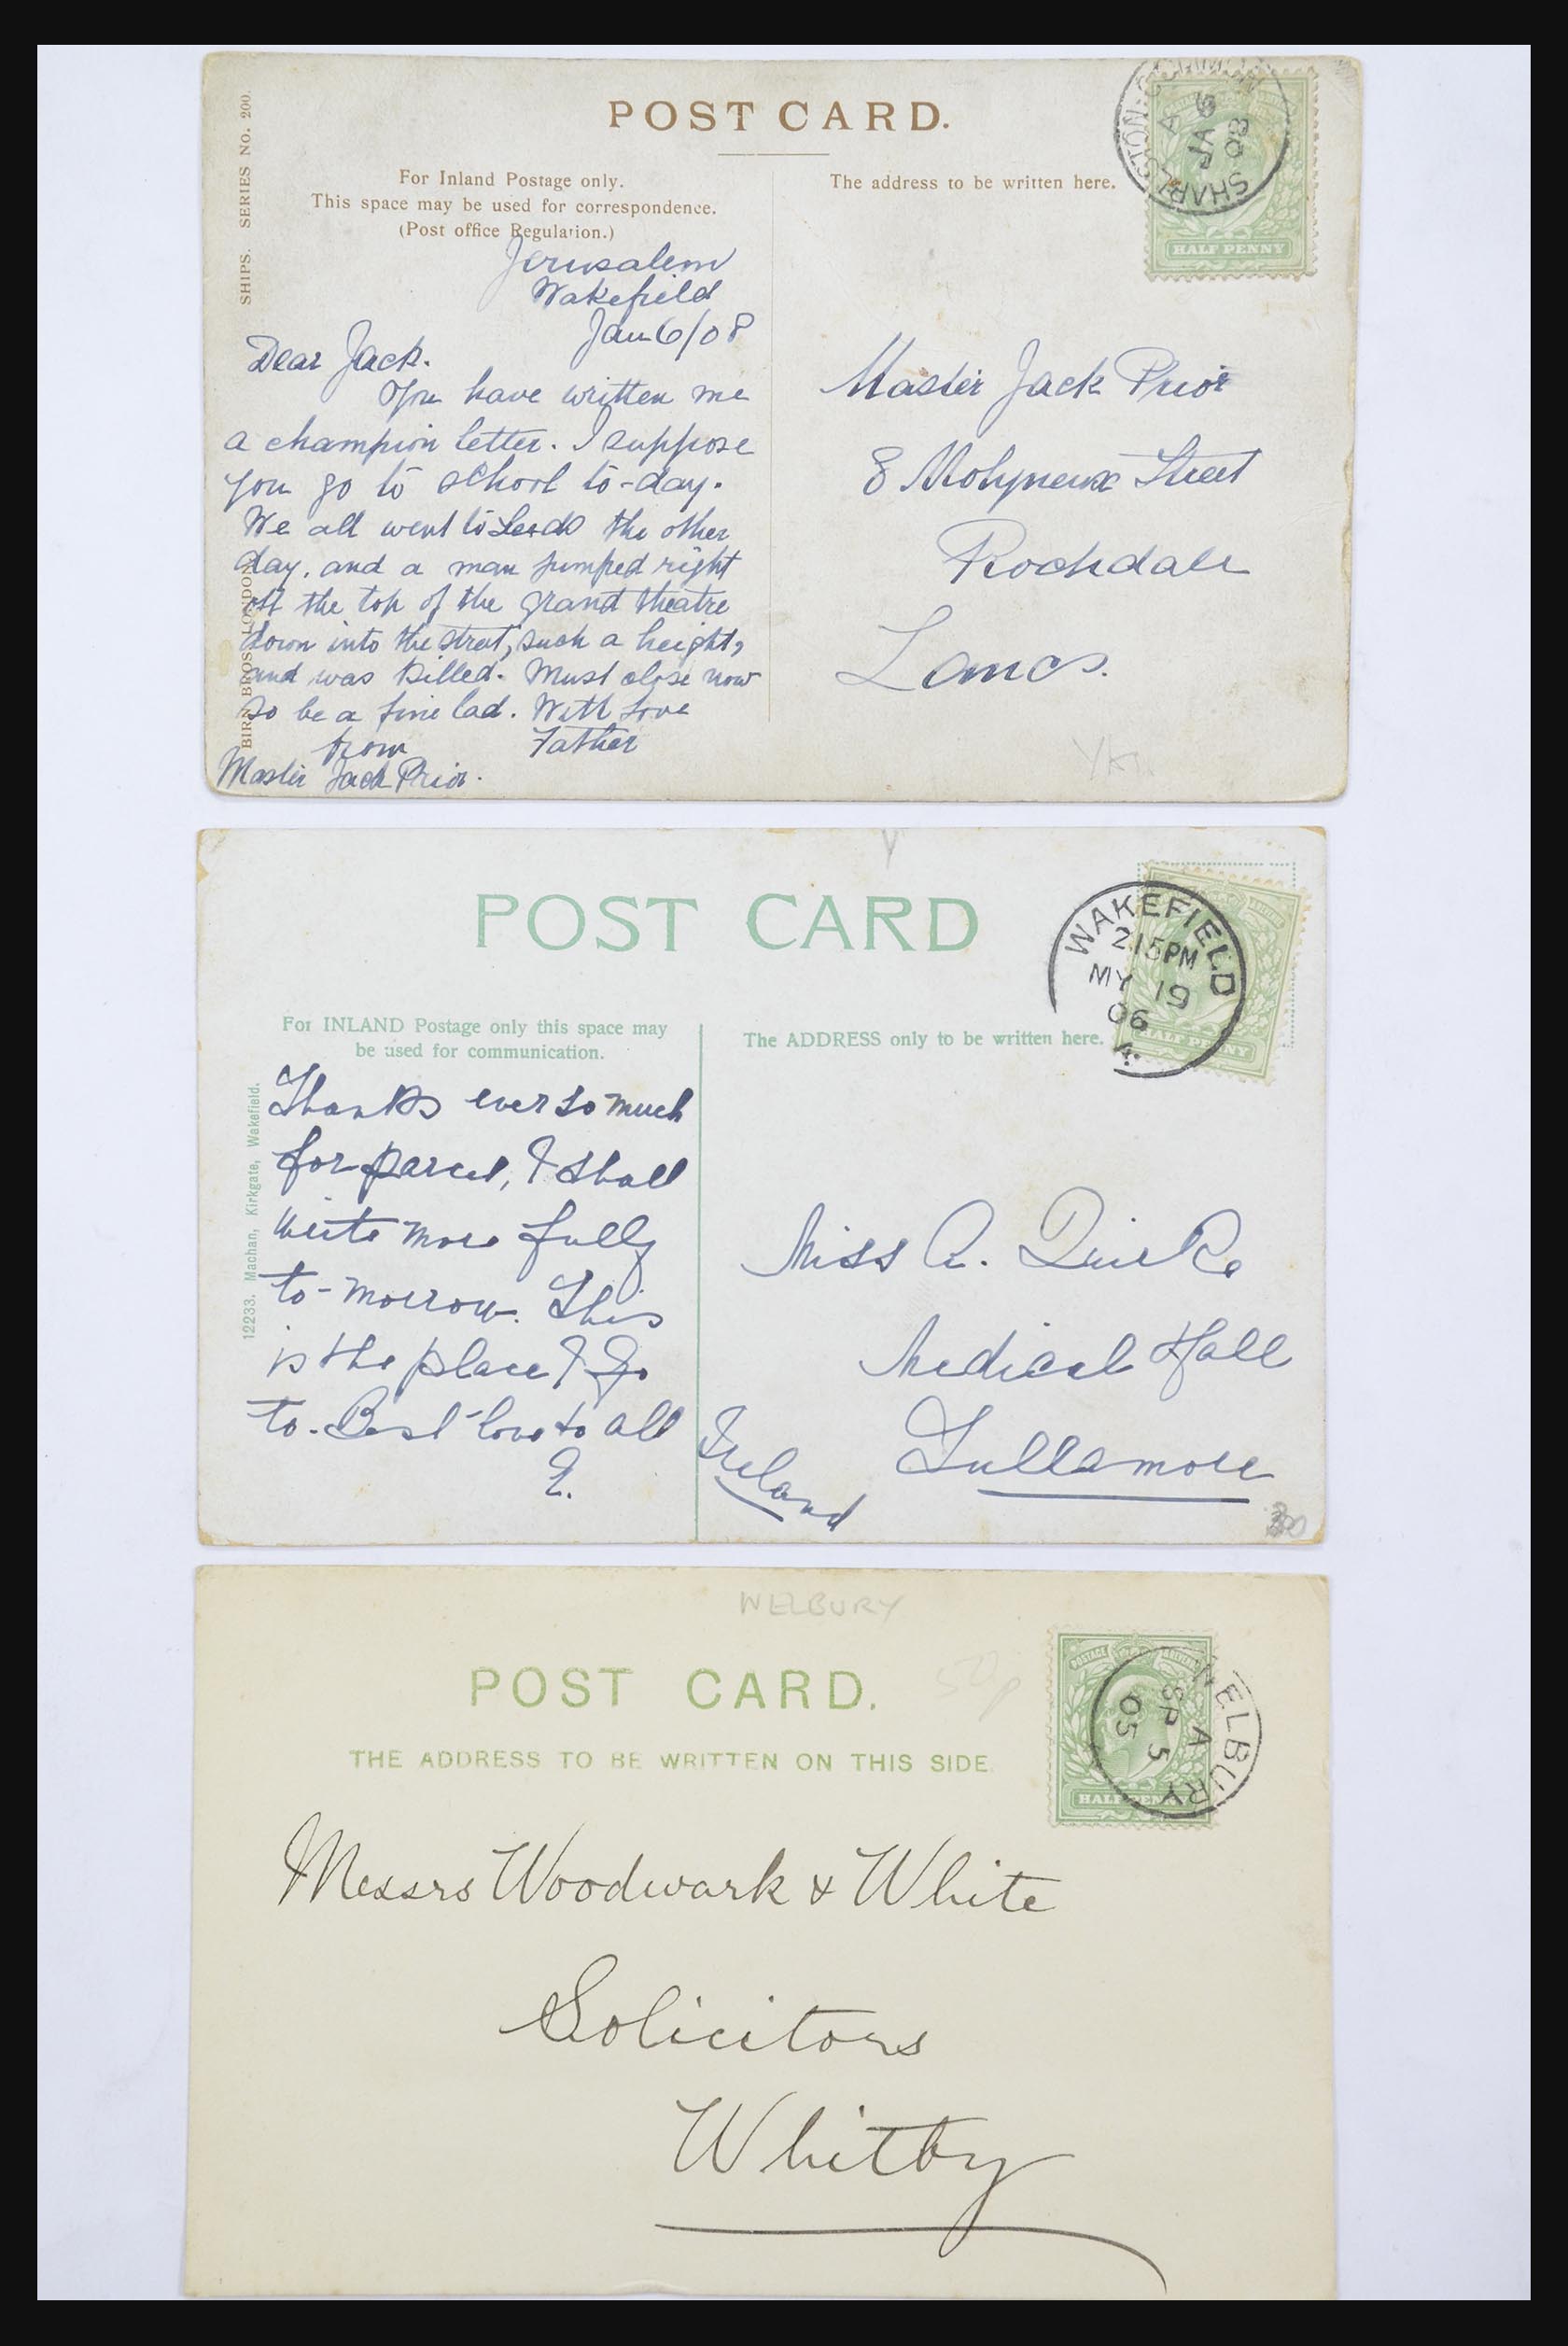 POST CARD.
SHIPS. SERIES NO. 200.
BIRN BROS LONDON
For Inland Postage only.
This space may be used for correspondence.
(Post office Regulation.)
The address to be written here.
SHARLSTON
A
JA 6
08
HALF PENNY
Jerusalem
Wakefield
Jan 6/08
Dear Jack.
You have written me
a champion letter. I suppose
you go to school to-day.
We all went to Leeds the other
day, and a man jumped right
off the top of the grand theatre
down into the street, such a height,
and was killed. Must close now
so be a fine lad. With love
from Father
Master Jack Prior.
Master Jack Prior
8 Molyneux Street
Rochdale
Lancs.
POST CARD
WAKEFIELD
2.15PM
MY 19
06
HALF PENNY
For INLAND Postage only this space may
be used for communication.
The ADDRESS only to be written here.
12233. Machan, Kirkgate, Wakefield.
Thanks ever so much
for parcel, I shall
write more fully
to-morrow. This
is the place I go
to. Best love to all
E.
Miss A. Quirke
Medical Hall
Tullamore
Ireland
WELBURY
50p
POST CARD.
THE ADDRESS TO BE WRITTEN ON THIS SIDE.
POSTAGE
WELBURY
A
SP 5
05
HALF PENNY
Messrs Woodwark & White
Solicitors
Whitby